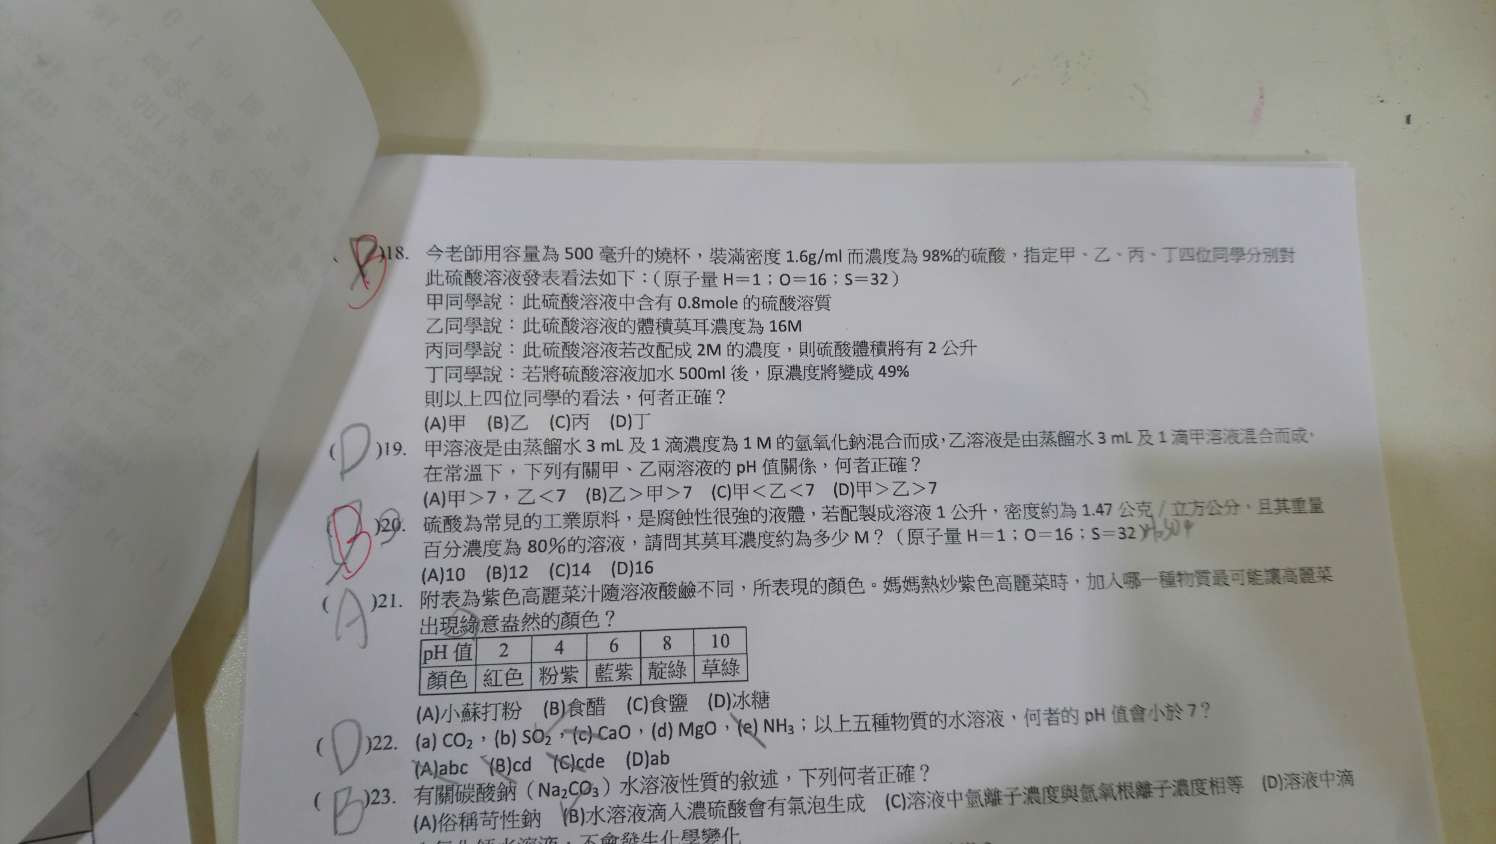 B)18. 今老師用容量為 500 毫升的燒杯，裝滿密度 1.6g/ml 而濃度為 98%的硫酸，指定甲、乙、丙、丁四位同學分別對
此硫酸溶液發表看法如下：（原子量 H＝1；O＝16；S＝32）
甲同學說：此硫酸溶液中含有 0.8mole 的硫酸溶質
乙同學說：此硫酸溶液的體積莫耳濃度為 16M
丙同學說：此硫酸溶液若改配成 2M 的濃度，則硫酸體積將有 2 公升
丁同學說：若將硫酸溶液加水 500ml 後，原濃度將變成 49%
則以上四位同學的看法，何者正確？
(A)甲 (B)乙 (C)丙 (D)丁
(D)19. 甲溶液是由蒸餾水 3 mL 及 1 滴濃度為 1 M 的氫氧化鈉混合而成，乙溶液是由蒸餾水 3 mL 及 1 滴甲溶液混合而成，
在常溫下，下列有關甲、乙兩溶液的 pH 值關係，何者正確？
(A)甲＞7，乙＜7 (B)乙＞甲＞7 (C)甲＜乙＜7 (D)甲＞乙＞7
(B)20. 硫酸為常見的工業原料，是腐蝕性很強的液體，若配製成溶液 1 公升，密度約為 1.47 公克／立方公分，且其重量
百分濃度為 80％的溶液，請問其莫耳濃度約為多少 M？（原子量 H＝1；O＝16；S＝32）
(A)10 (B)12 (C)14 (D)16
(A)21. 附表為紫色高麗菜汁隨溶液酸鹼不同，所表現的顏色。媽媽熱炒紫色高麗菜時，加入哪一種物質最可能讓高麗菜
出現綠意盎然的顏色？
pH 值 2 4 6 8 10
顏色 紅色 粉紫 藍紫 靛綠 草綠
(A)小蘇打粉 (B)食醋 (C)食鹽 (D)冰糖
(D)22. (a) CO₂，(b) SO₂，(c) CaO，(d) MgO，(e) NH₃；以上五種物質的水溶液，何者的 pH 值會小於 7？
(A)abc (B)cd (C)cde (D)ab
(B)23. 有關碳酸鈉（Na₂CO₃）水溶液性質的敘述，下列何者正確？
(A)俗稱苛性鈉 (B)水溶液滴入濃硫酸會有氣泡生成 (C)溶液中氫離子濃度與氫氧根離子濃度相等 (D)溶液中滴
水溶液，不會發生化學變化